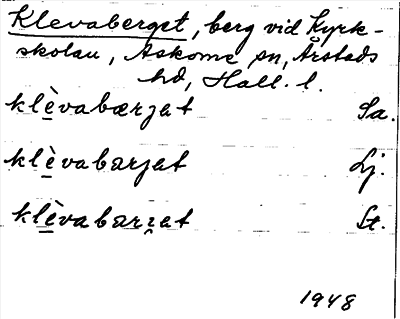 Klevaberget, berg vid Kyrk-
skolan, Askome sn, Årstads
hd, Hall. l.
klèvabærjat Sa.
klèvabærjat Lj.
klèvabærjat St.
1948